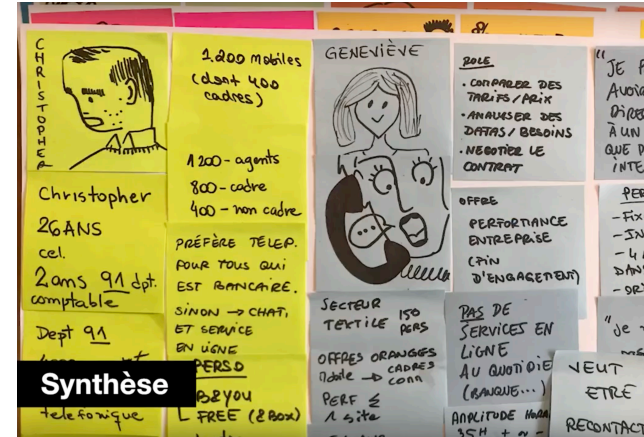 CHRISTOPHER
Christopher
26 ANS
cel.
2 ans 91 dpt.
comptable
Dept 91
telefonique
1.200 mobiles
(dont 400
cadres)
1200 - agents
800 - cadre
400 - non cadre
PRÉFÈRE TÉLEP.
POUR TOUS QUI
EST BANCAIRE.
SINON → CHAT,
ET SERVICE
EN LIGNE
PERSO
B&YOU
FREE (2Box)
GENEVIÈVE
SECTEUR
TEXTILE 150
PERS
OFFRES ORANGES
Mobile → CADRES
CONN
PERF ≤
1 site
ROLE
• COMPARER DES
TARIFS / PRIX
• ANALYSER DES
DATAS / BESOINS
• NEGOTIER LE
CONTRAT
OFFRE
PERFORMANCE
ENTREPRISE
(FIN
D'ENGAGEMENT)
PAS DE
SERVICES EN
LIGNE
AU QUOTIDIE
(BANQUE...)
AMPLITUDE HORA
35H + o -
"JE
AVOIR
DIRE
À UN
QUE
INTE
PER
- FIX
- IN
- 4
DAN
"Je
VEUT
ETRE
RECONTACT
Synthèse